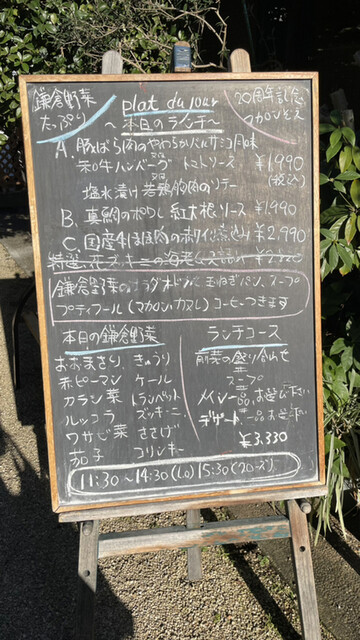 鎌倉野菜
たっぷり
plat du jour
～本日のランチ～
20周年記念
マカロンぞえ
A. 豚ばら肉のやわらか ハチミツ風味
和牛ハンバーグ トマトソース ¥1,990
塩水漬け若鶏胸肉のソテー (税込)
B. 真鯛のポワレ 紅大根ソース ¥1,990
C. 国産牛ほほ肉の赤ワイン煮込み ¥2,990
鎌倉野菜のサラダオードブル 玉ねぎパン、スープ
プティフール(マカロン・カヌレ)コーヒーつきます
本日の鎌倉野菜
おおまさり、きゅうり
赤ピーマン ケール
カラシ菜 トランペット
ルッコラ ズッキーニ
ワサビ菜 ささげ
茄子 コリンキー
ランチコース
前菜の盛り合わせ
スープ
メイン一品お選び下さい
デザート一品お選び下さい
¥3,330
11:30～14:30(LO)15:30(クローズ)